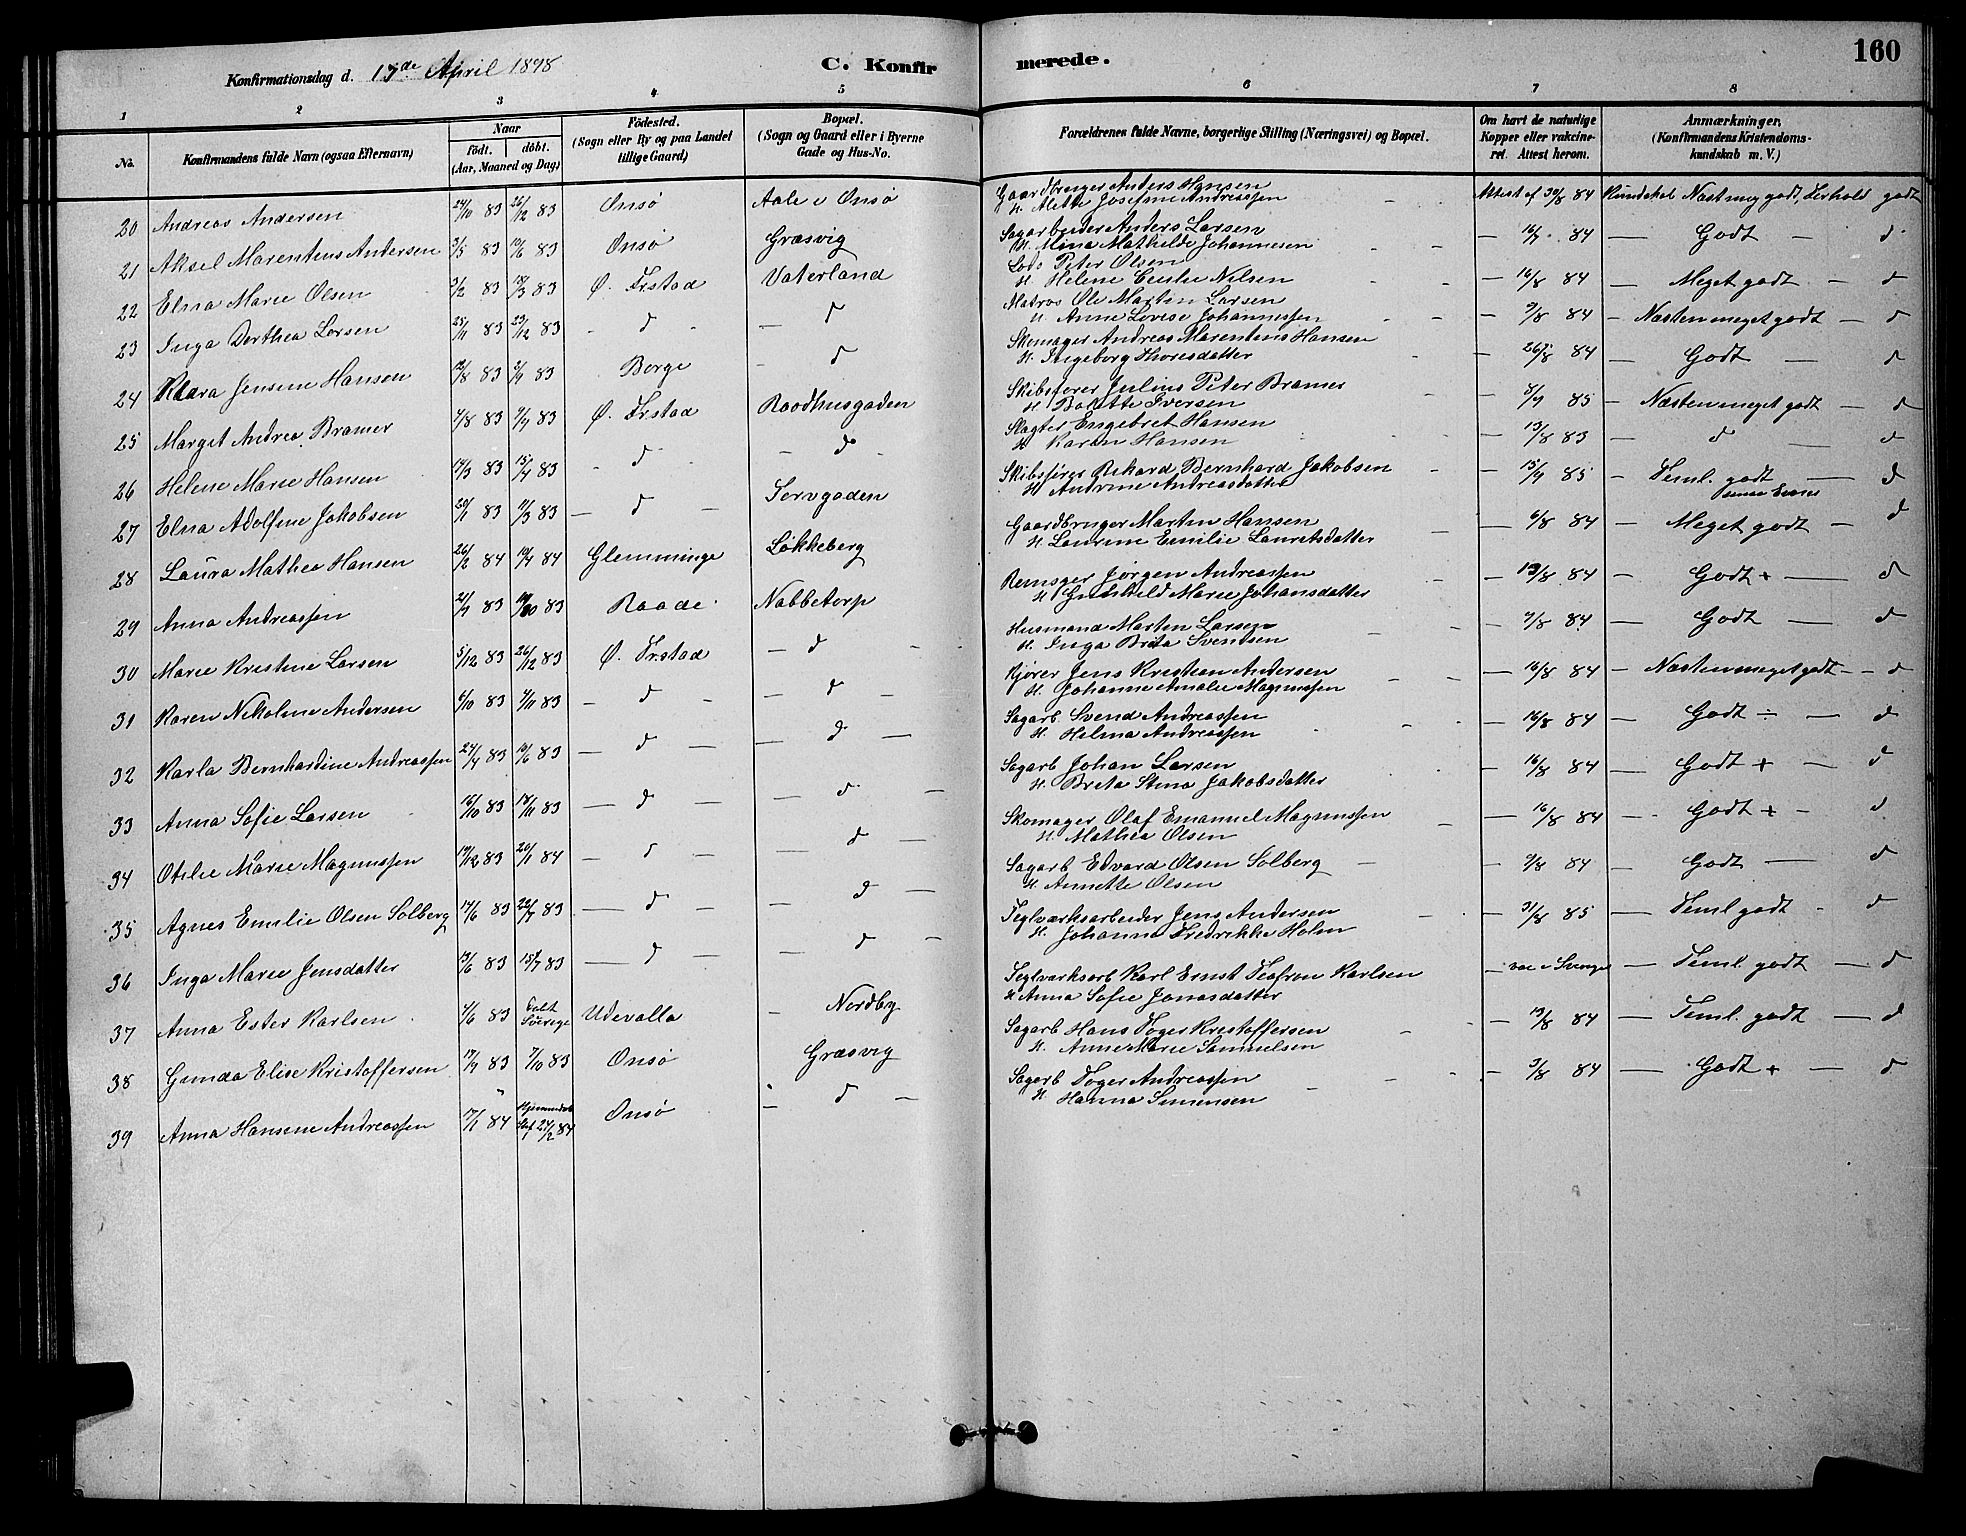 Konfirmationsdag d. 17de April 1898
C. Konfirmerede.
160
1 2 3 4 5 6 7 8
No. Konfirmandens fulde Navn (ogsaa Efternavn) Naar Födt. döbt. (Aar, Maaned og Dag) Födested. (Sogn eller By og paa Landet tillige Gaard) Bopæl. (Sogn og Gaard eller i Byerne Gade og Hus-No. Forældrenes fulde Navne, borgerlige Stilling (Næringsvei) og Bopæl. Om havt de naturlige Kopper eller vakcineret. Attest herom. Anmærkninger. (Konfirmandens Kristendomskundskab m. V.)
20 Andreas Andersen 24/10 83 26/12 83 Onsø Aale i Onsø Gaardbruger Anders Hansen
H. Mette Josefine Andreassen Attest af 30/8 84 Kundskab Næst meg godt, Forhold godt
21 Aksel Marentius Andersen 3/5 83 10/6 83 Onsø Græsvig Sagarbeider Anders Larsen
H. Mina Mathilde Johannesen — 16/7 84 — Godt — d
22 Elna Marie Olsen 2/2 83 18/3 83 Ø. Frstad Vaterland Lods Peter Olsen
H. Helene Nilsen — 16/8 84 — Meget godt — d
23 Inga Dorthea Larsen 25/11 83 23/12 83 - d - — d Matros Ole Martin Larsen
H. Anne Lovise Johannessen — 9/8 84 — Næsten meget godt — d
24 Klara Jensine Hansen 12/8 83 2/9 83 Borge - d Skomager Andreas Marentius Hansen
H. Ingeborg Thoresdatter — 26/8 84 — Godt — d
25 Marget Andrea Bramer 4/8 83 9/9 83 Ø. Frstad Raadhusgaden Skibsfører Julius Peter Bramer
H. Bolette Iversen — 8/9 85 — Næsten meget godt — d
26 Helene Marie Hansen 14/3 83 15/4 83 - d - - d - Slagter Engebret Hansen
H. Karen Hansen — 13/8 83 — d — d
27 Elna Adolfine Jakobsen 20/1 83 11/3 83 — d — Torvgaden Skibsfører Rikard Bernhard Jakobsen
H. Andrine Andreasdatter — 15/9 85 — Teml. godt — d
28 Laura Mathea Hansen 26/2 84 14/4 84 Glemminge Løkkeberg Gaardbruger Martin Hansen
H. Laurine Emilie Lauritsdatter — 6/8 84 — Meget godt — d
29 Anna Andreassen 21/9 83 14/10 83 Raade Nabbetorp Remsger Jörgen Andreassen
H. Gunhild Marie Johansdatter — 19/8 84 — Godt + — d
30 Marie Kristine Larsen 5/12 83 26/12 83 Ø. Frstad — d - Husmand Martin Larsen
H. Inga Brita Svendsen — 9/8 84 — Godt — d
31 Karen Nikoline Andersen 6/10 83 4/11 83 — d — — d — Kjører Jens Kristian Andersen
H. Johanne Amalie Magnussen — 16/8 84 — Næsten meget godt — d
32 Karla Bernhardine Andreassen 24/4 83 10/6 83 — d — — d — Sagarb Svend Andreassen
H. Hilma Andreassen — 16/8 84 — Godt ÷ — d
33 Anna Sofie Larsen 16/10 83 18/11 83 — d — — d — Sagarb Johan Larsen
H. Brita Stina Jakobsdatter — 16/8 84 — Godt + — d
34 Otilie Marie Magnussen 19/12 83 20/1 84 — d — d — Skomager Olaf Emanuel Magnussen
H. Mathea Olsen — 16/8 84 — Godt + - d
35 Agnes Emilie Olsen Solberg 17/6 83 22/7 83 — d — — d — Sagarb Edvard Olsen Solberg —
H. Annette Olsen — 9/8 84 — Godt — d
36 Inga Marie Jensdatter 13/6 83 15/7 83 — d — d — Teglværksarbeider Jens Andersen
H. Johanne Fredrikke Holm — 31/8 85 — Teml godt - d
37 Anna Ester Karlsen 4/6 83 Döbt Sverige Udevalla - Nordby Teglværksarb Karl Ernst Karlsen
H Anna Sofie Jonasdatter — vac i Sverige — Teml. godt — d
38 Gunda Elise Kristoffersen 17/9 83 7/10 83 Onsø Græsvig Sagarb Hans Toger Kristoffersen
H. Anne Marie Samuelsen — 19/8 84 — Teml. godt — d
39 Anna Hansine Andreassen 17/1 84 Hjemmedøbt Stf 24/2 84 Onsø — d — Sagarb Toger Andreassen
H Hanna Simensen — 3/8 84 — Godt + — d